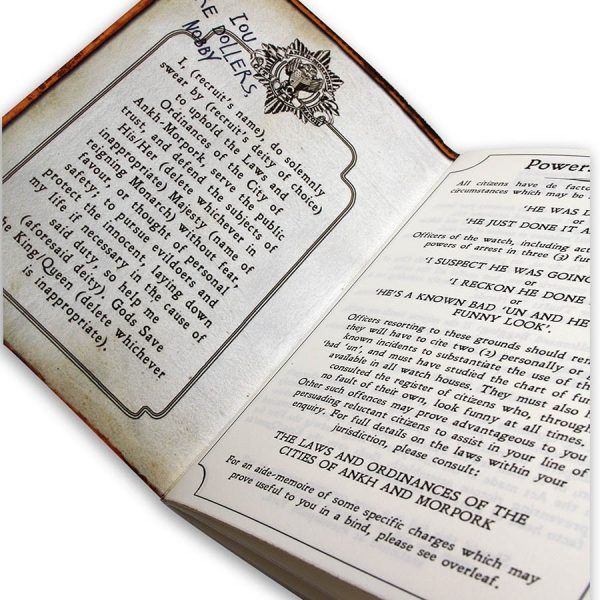 IOU
DOLLERS,
NOBBY
I, (recruit's name), do solemnly
swear by (recruit's deity of choice)
to uphold the Laws and
Ordinances of the City of
Ankh-Morpork, serve the public
trust, and defend the subjects of
His/Her (delete whichever is
inappropriate) Majesty (name of
reigning Monarch) without fear,
favour, or thought of personal
safety; to pursue evildoers and
protect the innocent, laying down
my life if necessary in the cause of
said duty, so help me
(aforesaid deity). Gods Save
the King/Queen (delete whichever
is inappropriate).
Power
All citizens have de facto
circumstances which may be
'HE WAS D
or
'HE JUST DONE IT A
Officers of the watch, including act
powers of arrest in three (3) fu
'I SUSPECT HE WAS GOING
or
'I RECKON HE DONE
or
'HE'S A KNOWN BAD 'UN AND HE
FUNNY LOOK'.
Officers resorting to these grounds should rem
they will have to cite two (2) personally or
known incidents to substantiate the use of th
'bad 'un', and must have studied the chart of fun
available in all watch houses. They must also h
consulted the register of citizens who, through
no fault of their own, look funny at all times.
Other such offences may prove advantageous to you
persuading reluctant citizens to assist in your line of
enquiry. For full details on the laws within your
jurisdiction, please consult:
THE LAWS AND ORDINANCES OF THE
CITIES OF ANKH AND MORPORK
For an aide-memoire of some specific charges which may
prove useful to you in a bind, please see overleaf.